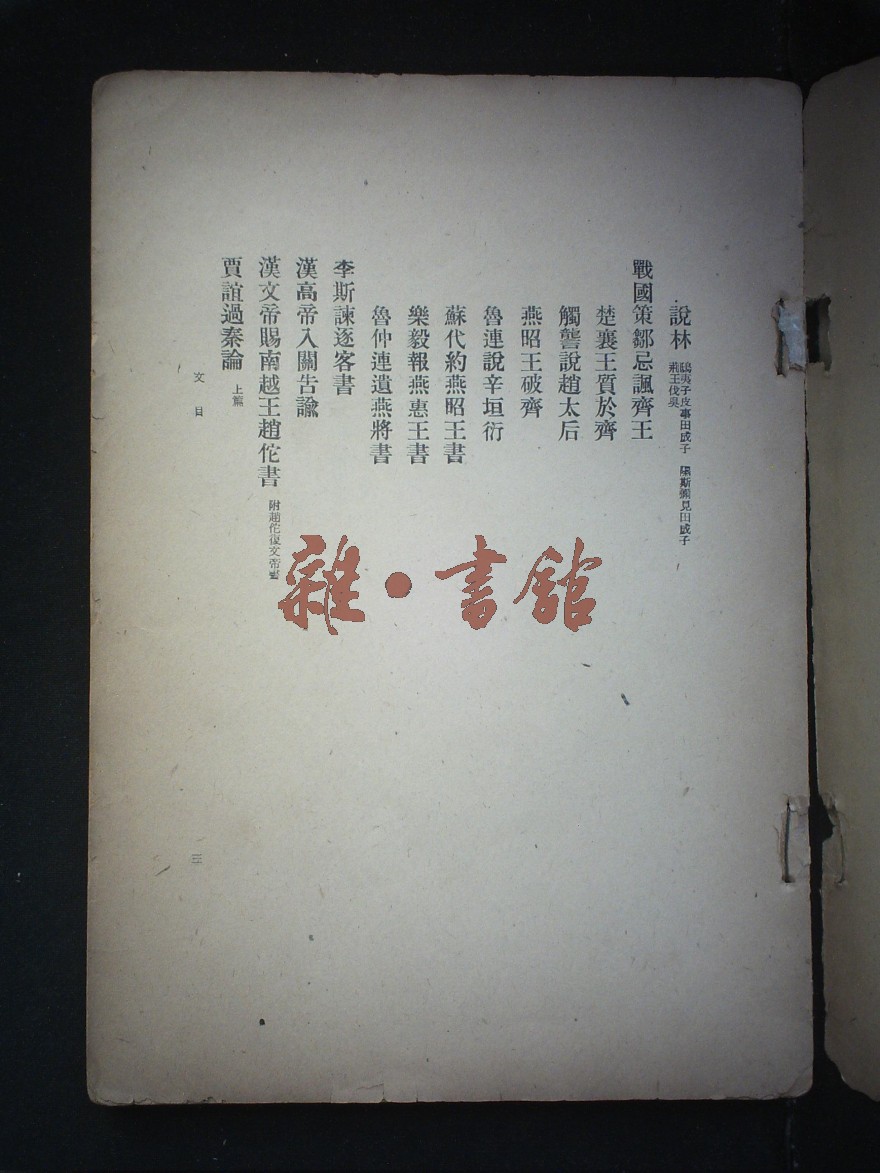 說林 鴟夷子皮事田成子 隰斯彌見田成子
荊王伐吳
戰國策鄒忌諷齊王
楚襄王質於齊
觸讋說趙太后
燕昭王破齊
魯連說辛垣衍
蘇代約燕昭王書
樂毅報燕惠王書
魯仲連遺燕將書
李斯諫逐客書
漢高帝入關告諭
漢文帝賜南越王趙佗書 附趙佗復文帝書
賈誼過秦論 上篇
文目
三
雜·書館